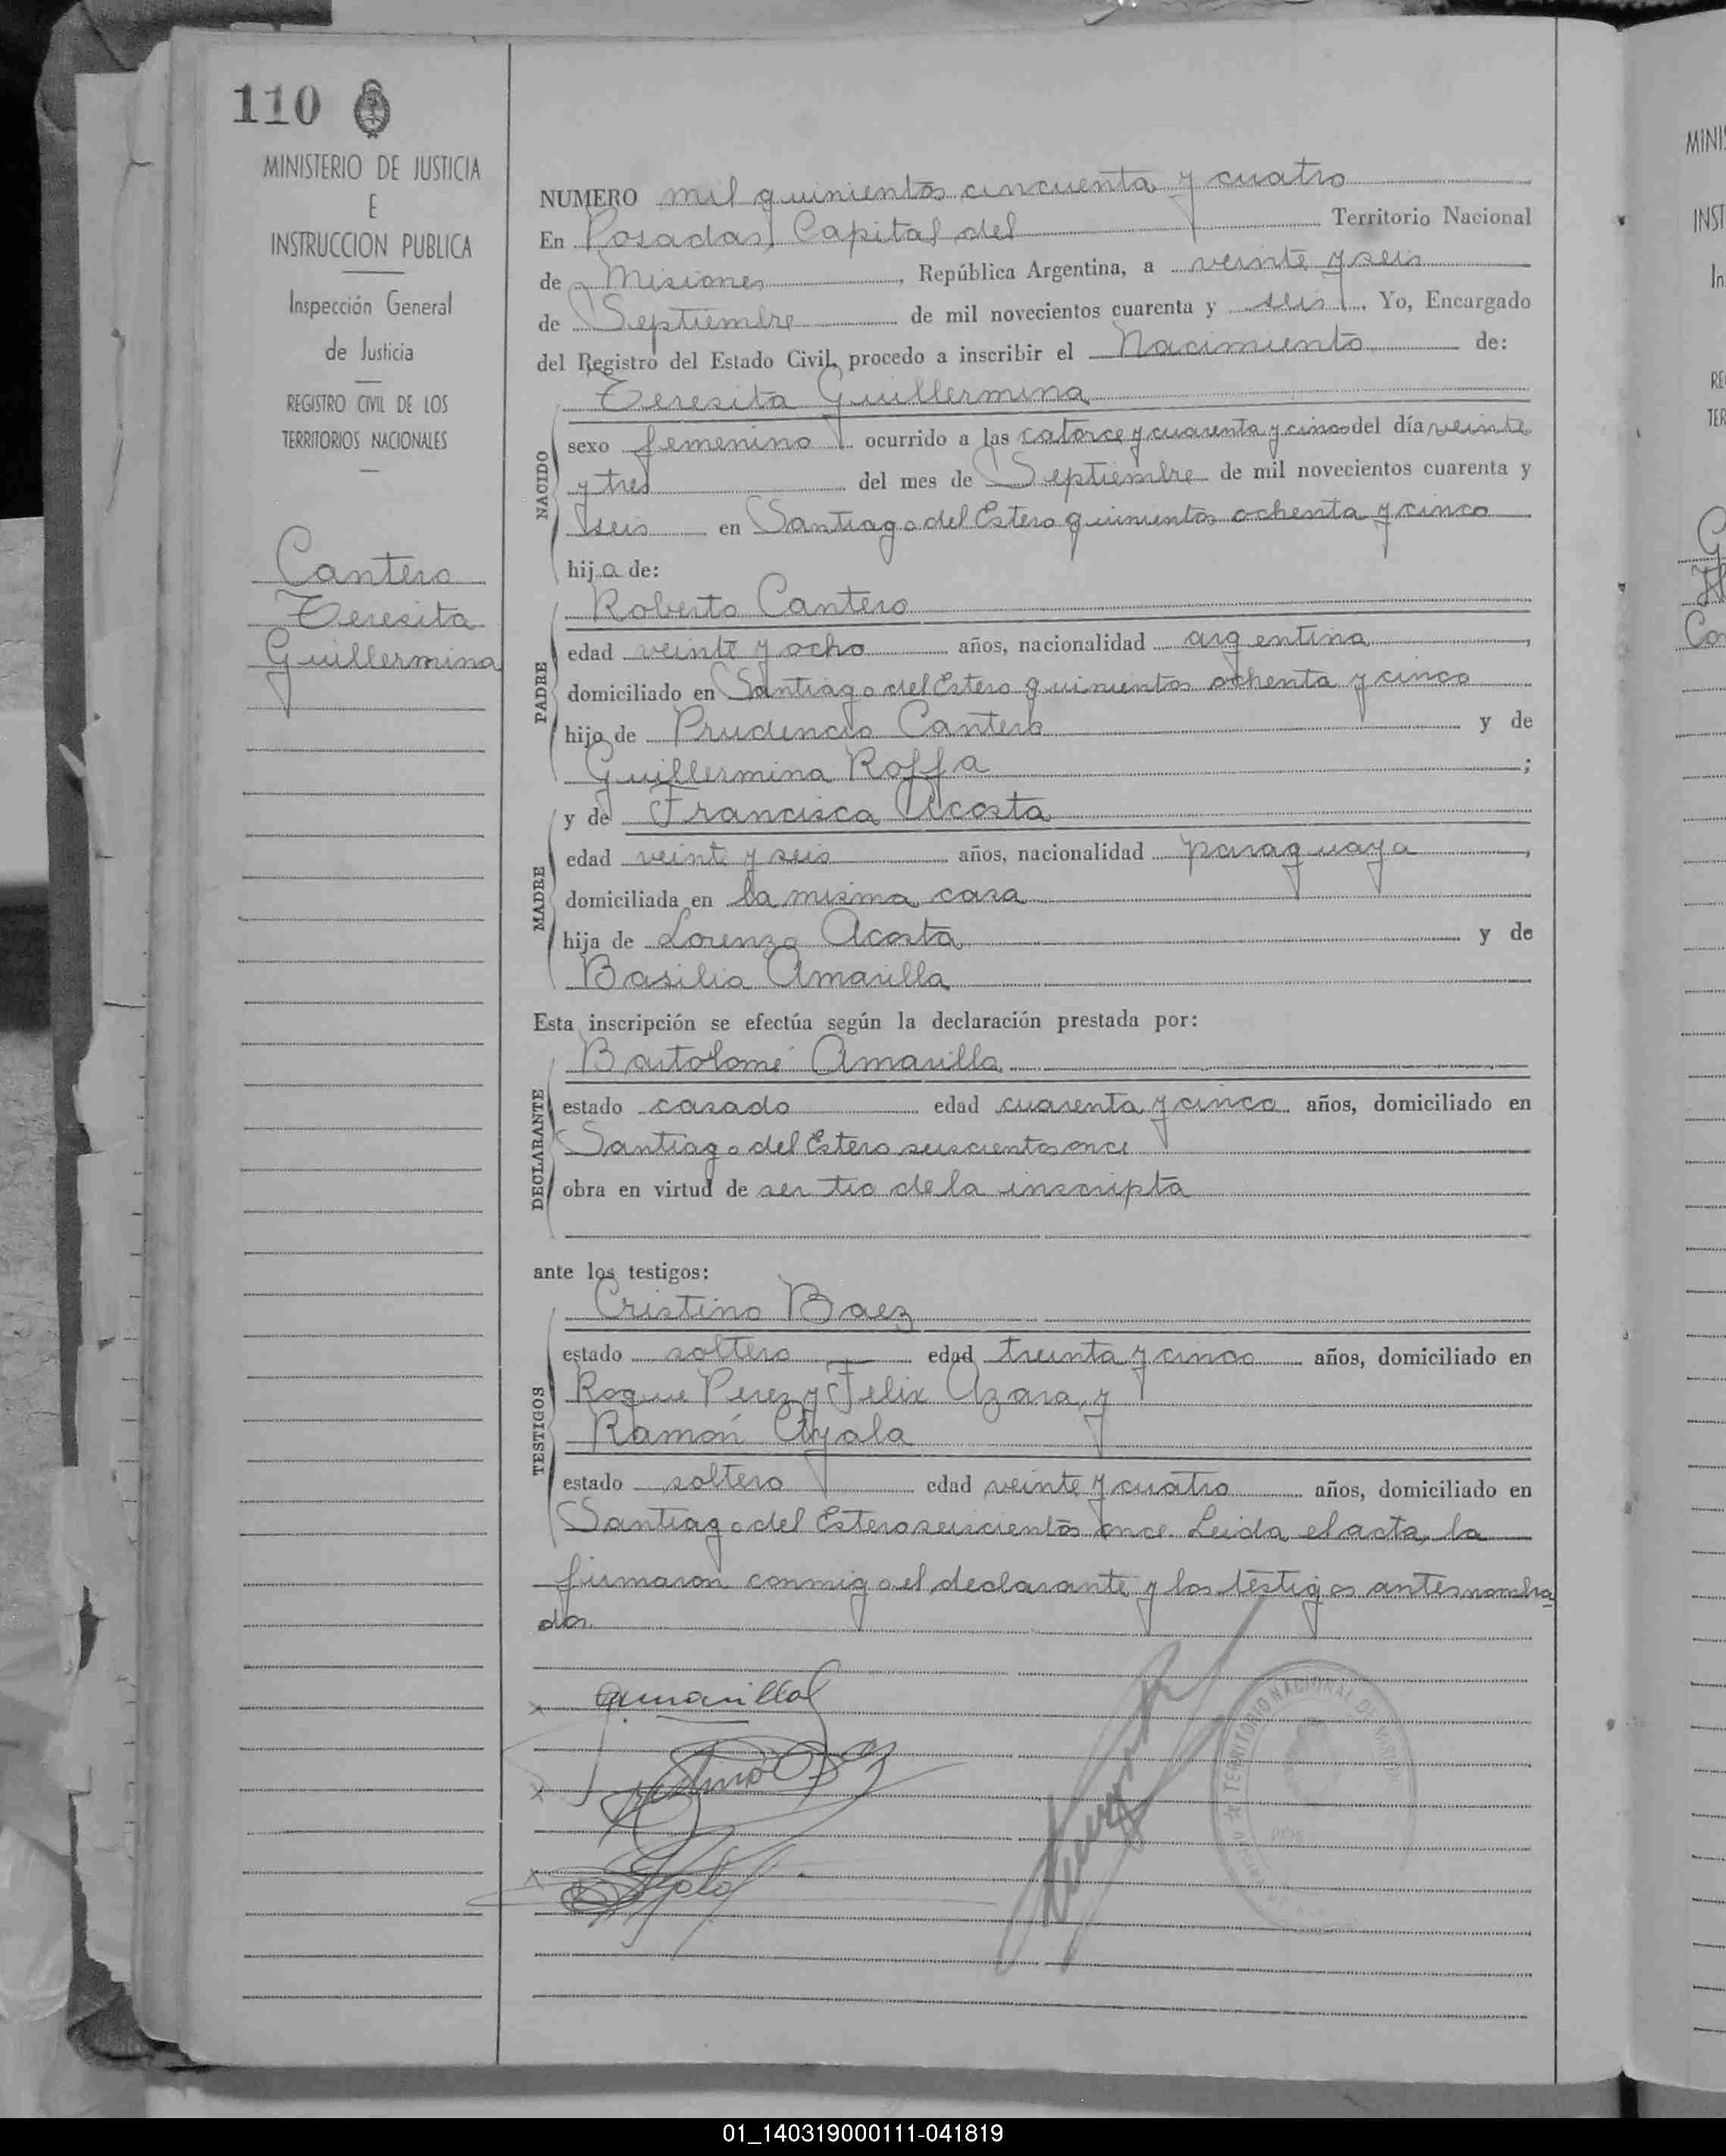 110
MINISTERIO DE JUSTICIA
E
INSTRUCCION PUBLICA
Inspección General
de Justicia
REGISTRO CIVIL DE LOS
TERRITORIOS NACIONALES
Cantero
Teresita
Guillermina
NUMERO mil quinientos cincuenta y cuatro
En Posadas, Capital del Territorio Nacional
de Misiones, República Argentina, a veinte y seis
de Septiembre de mil novecientos cuarenta y seis. Yo, Encargado
del Registro del Estado Civil, procedo a inscribir el Nacimiento de:
Teresita Guillermina
NACIDO
sexo femenino ocurrido a las catorce y cuarenta y cinco del día veinte
y tres del mes de Septiembre de mil novecientos cuarenta y
seis en Santiago del Estero quinientos ochenta y cinco
hija de:
Roberto Cantero
PADRE
edad veinte y ocho años, nacionalidad argentina,
domiciliado en Santiago del Estero quinientos ochenta y cinco
hijo de Prudencio Cantero y de
Guillermina Roffa;
y de Francisca Acosta
MADRE
edad veinte y seis años, nacionalidad paraguaya,
domiciliada en la misma casa
hija de Lorenzo Acosta y de
Basilia Amarilla
Esta inscripción se efectúa según la declaración prestada por:
Bartolomé Amarilla
DECLARANTE
estado casado edad cuarenta y cinco años, domiciliado en
Santiago del Estero seiscientos once
obra en virtud de ser tio de la inscripta
ante los testigos:
Cristino Baez
TESTIGOS
estado soltero edad treinta y cinco años, domiciliado en
Roque Perez y Felix Azara, y
Ramón Ayala
estado soltero edad veinte y cuatro años, domiciliado en
Santiago del Estero seiscientos once. Leida el acta, la
firmaron conmigo el declarante y los testigos antes nombra
dos.
Amarilla
TERRITORIO NACIONAL DE MISIONES
01_140319000111-041819